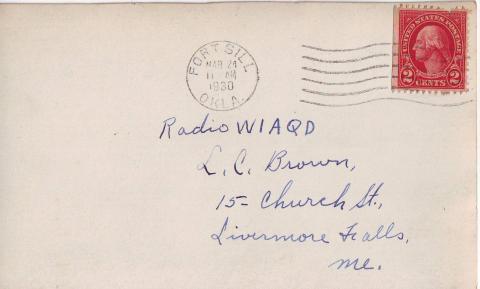 FORT SILL
MAR 24
11 AM
1930
OKLA.
UNITED STATES POSTAGE
2 CENTS 2
Radio W1AQD
L. C. Brown,
15- Church St.,
Livermore Falls,
Me.